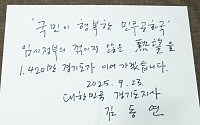 「국민이 행복한 민주공화국」
임시정부의 꺾이지 않은 열망을
1,420만 경기도가 이어 가겠습니다.
2025. 9. 23.
대한민국 경기도지사
김동연